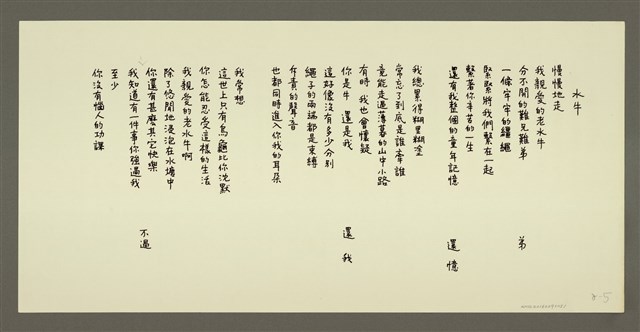 水牛
慢慢地走
我親愛的老水牛
分不開的難兄難弟
一條牢牢的繮繩
緊緊將我們繫在一起
繫著你辛苦的一生
還有我整個的童年記憶
我總累得糊里糊塗
常忘了到底是誰牽誰
竟能走過薄暮的山中小路
有時 我也會懷疑
你是牛 還是我
這好像沒有多少分別
繩子的兩端都是束縛
斥責的聲音
也都同時進入你我的耳朵
我常想
這世上只有烏龜比你沈默
你怎能忍受這樣的生活
我親愛的老水牛啊
除了悠閒地浸泡在水塘中
你還有甚麼其它快樂
我知道有一件事你強過我
至少
你沒有惱人的功課
弟
還 憶
還 我
不過
8-5